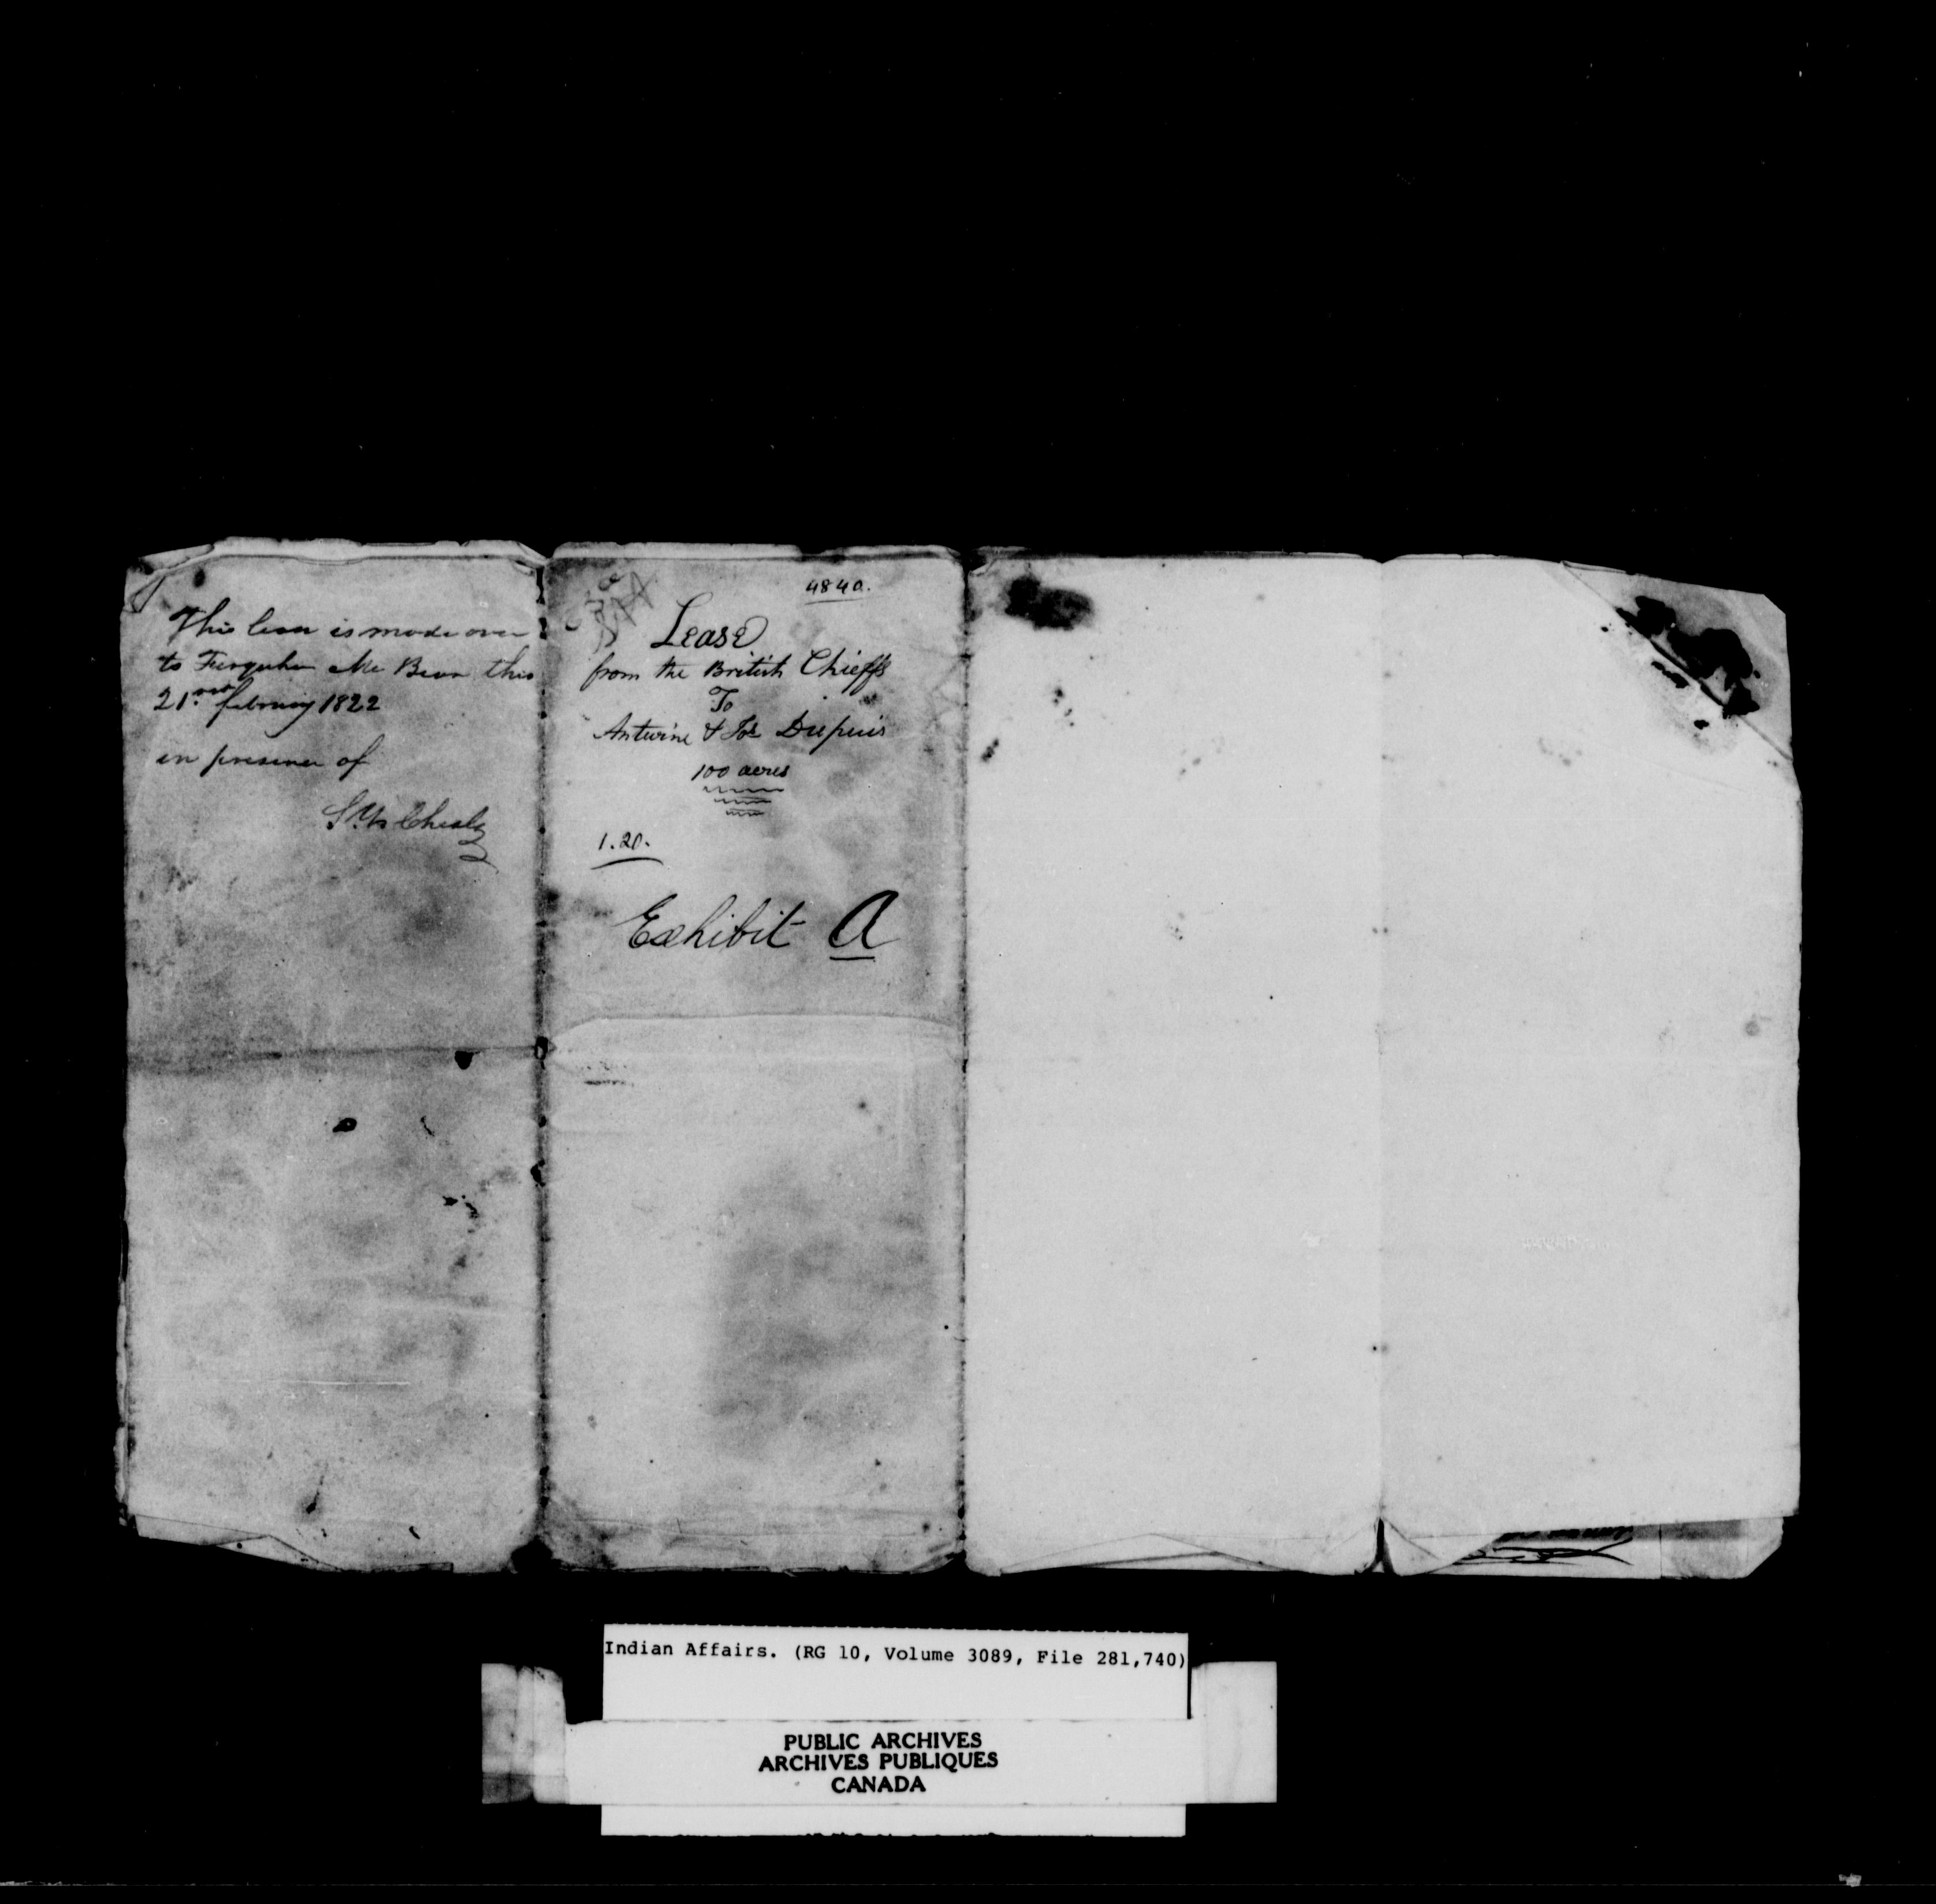 This lease is made over
to Furquher Mc Bean this
21st february 1822
in presence of
4840.
Lease
from the British Chieffs
To
Antwine & Jos Dupuis
100 acres
1.20.
Exhibit A
Indian Affairs. (RG 10, Volume 3089, File 281,740)
PUBLIC ARCHIVES
ARCHIVES PUBLIQUES
CANADA